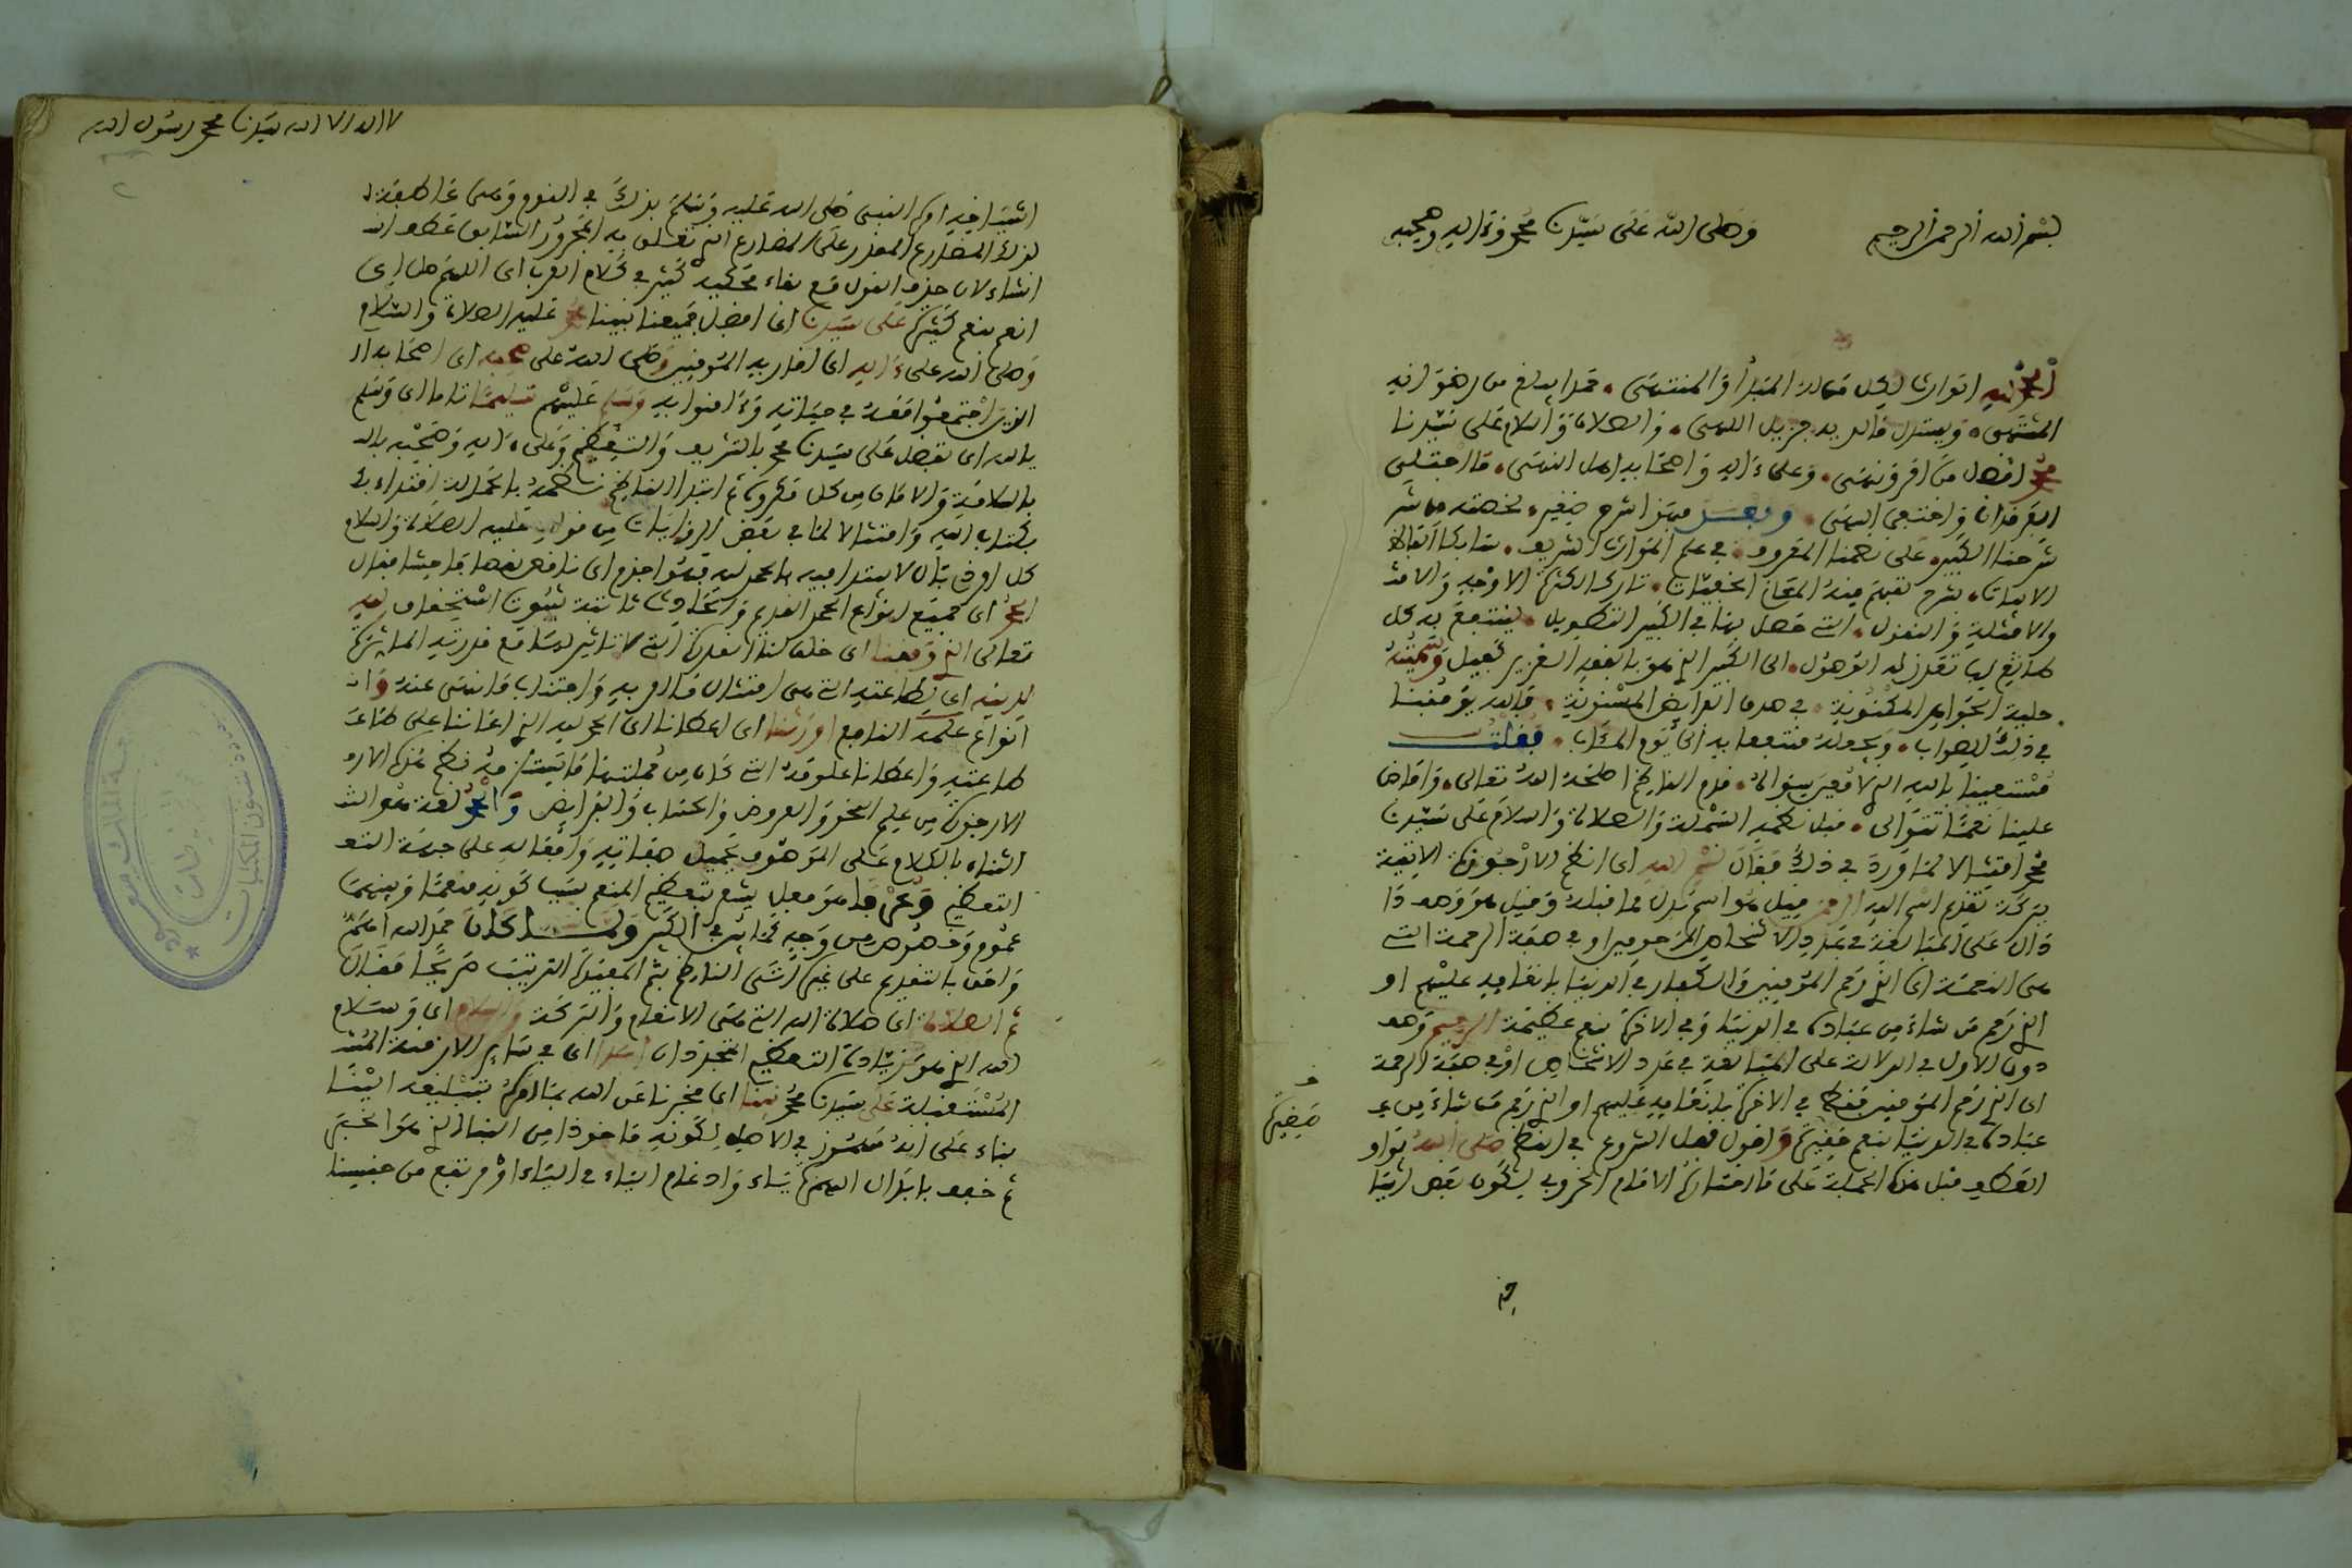 بسم الله الرحمن الرحيم وصلى الله على سيدنا محمد وءاله وصحبه
الحمد لله الوارث لكل ما له المبدأ والمنتهى. حمدا يبلغ من رضوانه
المشتهى. ويستدل قائله به جزيل اللهى. والصلاة والسلام على سيدنا
محمد افضل من امر ونهى. وعلى ءاله واصحابه اهل النهى. ما اجتلي
الفرقدان واختفى السهى. وبعد فهذا شرح صغير. لخصته من شر
شرحنا الكبير. على نظمنا المقرو في علم الموارث الشريف.
الابيات. بشرح تفهم منه المعان الخفيات. تاركا لكثرة الاوجه والامثـ
والامثلة والنقول. التي حصل بها في الكبير التطويل. لينتفع به كل
طالع لها تعذر له الوصول. الى الكبير الذي هو بالقصد الغزير كفيل وسميته
حلية الجواهر المكنونة. في صدف الفرايض المسنونة. والله يوفقنا
في ذلك للصواب. ويجعله منتفعا به الى يوم المئاب. فقلت
مستعينا بالله الذي لا معين سواه. قدم الناظم اصلحه الله تعالى. وافاض
علينا نعما تتوالى. قبل نظمه البسملة والصلاة والسلام على سيدنا
محمد امتثالا لما ورد في ذلك فقال بسم الله اى انظم الارجوزة الاتية
ببركة تقدم اسم الله الرحمن قيل هو اسم بدل مما قبله وقيل هو وصف دا
دال على المبالغة في عدد الاشخاص المرحومين او في صفة الرحمة التي
هى النعمة اى الذي رحم المؤمنين والكفار في الدنيا بانعامه عليهم او
الذي رحم من شاء من عباده في الدنيا وفي الاخرة بنعم عظيمة الرحيم وهو
دون الاول في الدلالة على المبالغة في عدد الاشخاص او في صفة الرحمة
اى الذي رحم المؤمنين فقط في الاخرة بانعامه عليهم او الذي رحم من شاء من عـ
عباده في الدنيا بنعم صغيرة واقول قبل الشروع في النظم صلى الله بواو
العطف قبل هذه الجملة على ما اختاره الامام الخروبي لكون بعض اشيا
صغيرة
لا اله الا الله سيدنا محمد رسول الله
اشياخه امره النبي صلى الله عليه وسلم بذلك في النوم وهى عاطفة لـ
لذلك المضارع المقدر على المضارع الذي تعلق به المجرور السابق عطف ان
انشاء لان حذف القول مع بقاء محكيه كثير في كلام العرب اى اللهم صل اى
انعم بنعم كثيرة على سيدنا اى افضل جميعنا نبينا محمد عليه الصلاة والسلام
وصلى الله على ءاله اى اقاربه المؤمنين وصلى الله على صحبه اى اصحابه الـ
الذين اجتمعوا معه في حياته وءامنوا به وسلم عليهم تسليما تاما اى وسلم
يا الله اى تفضل على سيدنا محمد بالتشريف والتعظيم وعلى ءاله وصحبه بالـ
بالسلامة والامان من كل مكروه ثم ابتدا الناظم نظمه بالحمدلة اقتداء بـ
بكتاب الله وامتثالا لما في بعض الروايات من قوله عليه الصلاة والسلام
كل امر ذى بال لا يبتدا فيه بالحمد لله فهو اجذم اى ناقص نقصا فاحشا فقال
الحمد اى جميع انواع الحمد القديم والحادث ثابتة ثبوت استحقاق لله
تعالى الذي وفقنا اى خلق لنا القدرة التي لا تاثير لها مع قدرته المباشرة
لدينه اى لطاعته التي هى امتثال ما امر به واجتناب ما نهى عنه وان
انواع علمه النافع اورثنا اى اعطانا اى الحمد لله الذي اعاننا على طاعتـ
طاعته واعطانا علومه التي كان من جملتها ما يستمد منه نظم هذه الار
الارجوزة من علم النحو والعروض والحساب والفرائض والحمد لغة هو الثـ
الثناء بالكلام على الموصوف بجميل صفاته وافعاله على جهة التعـ
التعظيم وعرفا هو فعل يشعر بتعظيم المنعم بسبب كونه منعما وبينهما
عموم وخصوص من وجه كما في الكبير ولما كان حمد الله اهم
واحق بالتقديم على غيره اتى الناظم بثم المفيدة الترتيب صريحا فقال
ثم الصلاة اى صلاة الله التي هى الانعام والبركة والسلام اى وسلام
الله الذي هو زيادة التعظيم المتجددان ابدا اى في سائر الازمنة المستـ
المستقبلة على سيدنا محمد نبينا اى مخبرنا عن الله بما امره بتبليغه الينا
بناء على انه مهموز في الاصل لكونه ماخوذا من النبا الذي هو الخبر
ثم خفف بابدال الهمزة ياء وادغام الياء في الياء او مرتفع من جنسنا